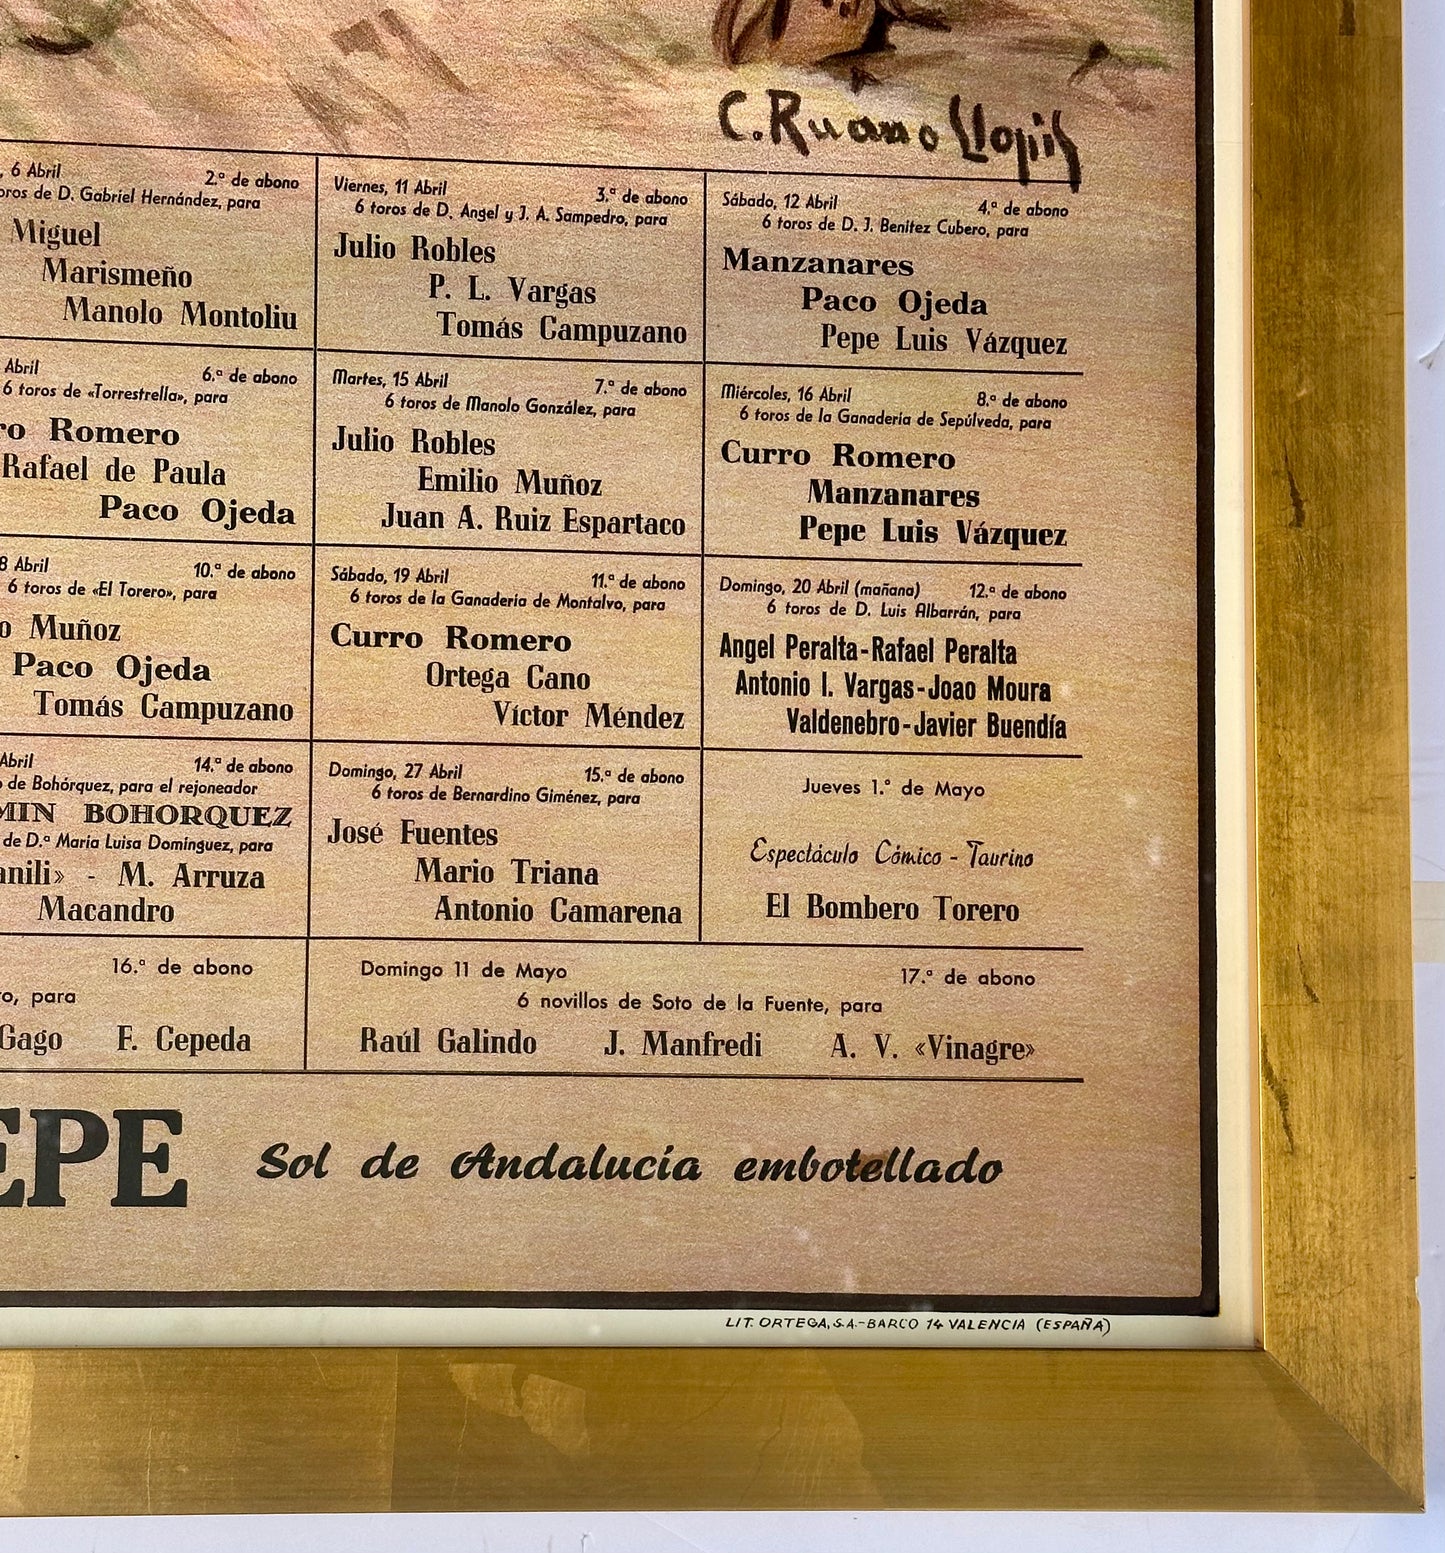 C. Ruano Llopis
, 6 Abril 2.ª de abono
oros de D. Gabriel Hernández, para
Miguel
Marismeño
Manolo Montoliu
Viernes, 11 Abril 3.ª de abono
6 toros de D. Angel y J. A. Sampedro, para
Julio Robles
P. L. Vargas
Tomás Campuzano
Sábado, 12 Abril 4.ª de abono
6 toros de D. J. Benitez Cubero, para
Manzanares
Paco Ojeda
Pepe Luis Vázquez
Abril 6.ª de abono
6 toros de «Torrestrella», para
ro Romero
Rafael de Paula
Paco Ojeda
Martes, 15 Abril 7.ª de abono
6 toros de Manolo González, para
Julio Robles
Emilio Muñoz
Juan A. Ruiz Espartaco
Miércoles, 16 Abril 8.ª de abono
6 toros de la Ganaderia de Sepúlveda, para
Curro Romero
Manzanares
Pepe Luis Vázquez
8 Abril 10.ª de abono
6 toros de «El Torero», para
o Muñoz
Paco Ojeda
Tomás Campuzano
Sábado, 19 Abril 11.ª de abono
6 toros de la Ganaderia de Montalvo, para
Curro Romero
Ortega Cano
Víctor Méndez
Domingo, 20 Abril (mañana) 12.ª de abono
6 toros de D. Luis Albarrán, para
Angel Peralta-Rafael Peralta
Antonio I. Vargas-Joao Moura
Valdenebro-Javier Buendía
Abril 14.ª de abono
o de Bohórquez, para el rejoneador
MIN BOHORQUEZ
de D.ª Maria Luisa Dominguez, para
anili» - M. Arruza
Macandro
Domingo, 27 Abril 15.ª de abono
6 toros de Bernardino Giménez, para
José Fuentes
Mario Triana
Antonio Camarena
Jueves 1.º de Mayo
Espectáculo Cómico - Taurino
El Bombero Torero
16.ª de abono
o, para
Gago F. Cepeda
Domingo 11 de Mayo 17.ª de abono
6 novillos de Soto de la Fuente, para
Raúl Galindo J. Manfredi A. V. «Vinagre»
EPE Sol de Andalucía embotellado
LIT. ORTEGA, S.A.-BARCO 14 VALENCIA (ESPAÑA)